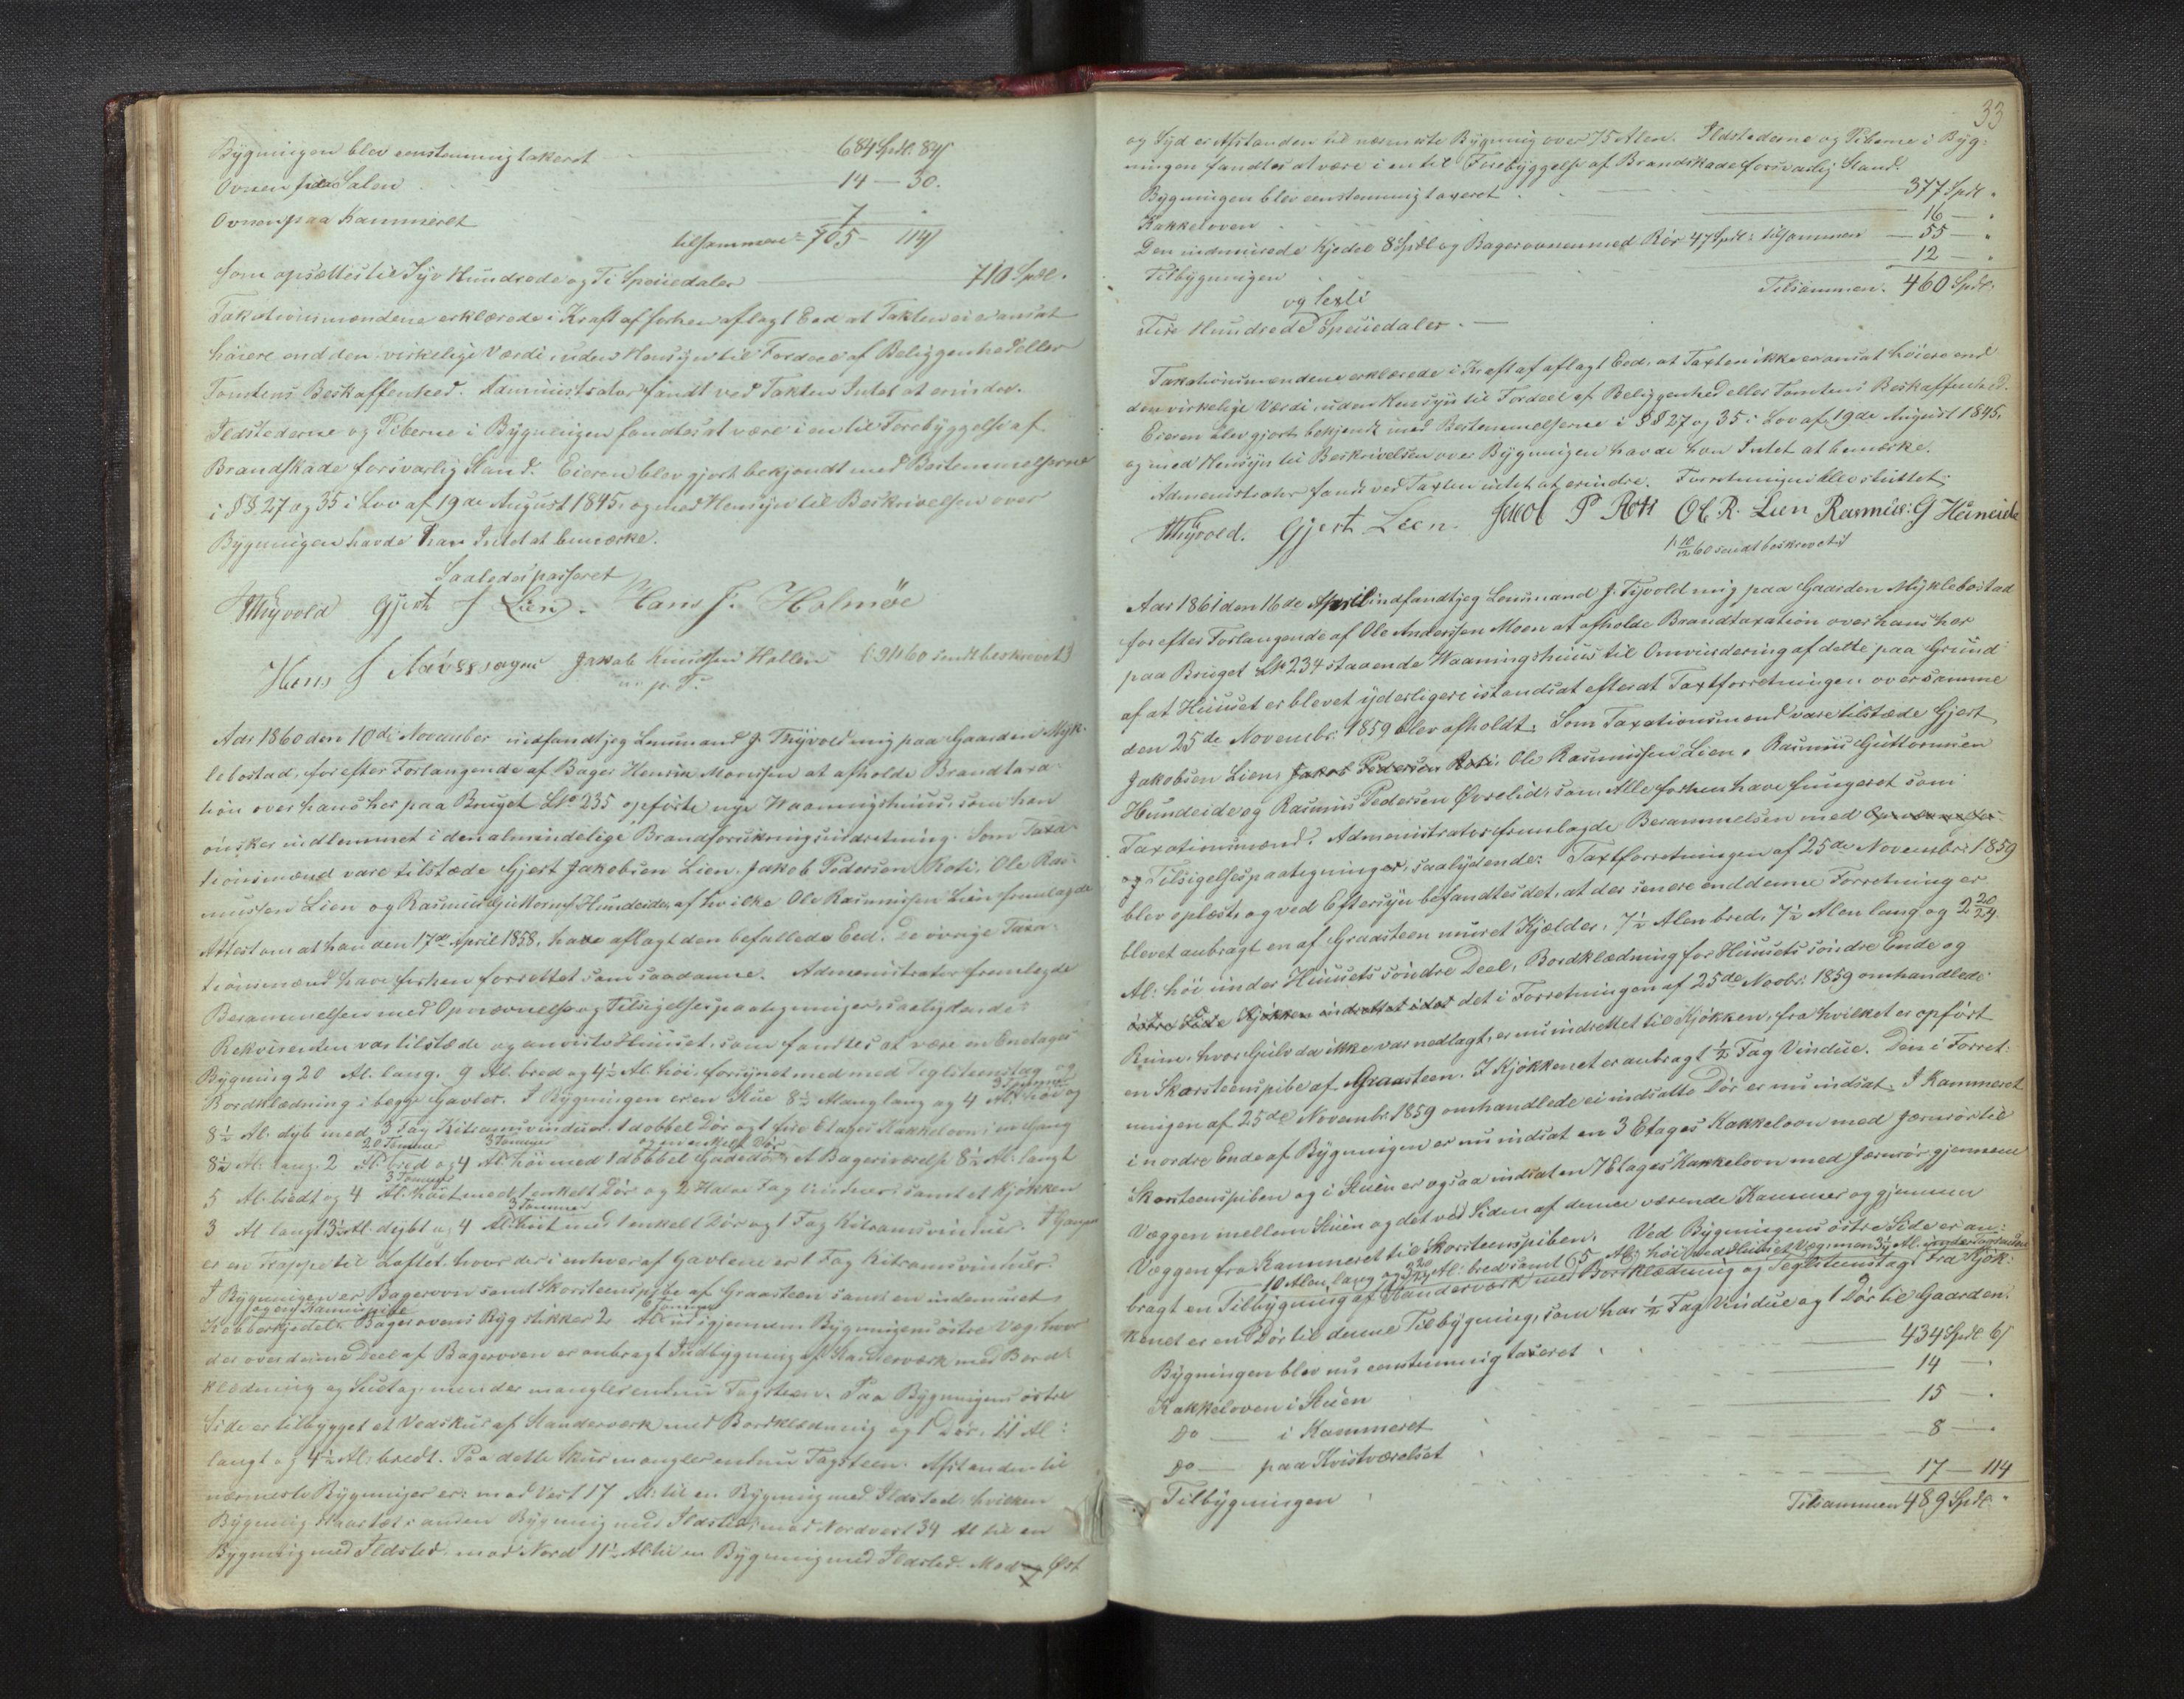 Bygningen blev eenstemmig takeret 684 Spdl. 84 s
Ovnen paa Salen 14 — 30.
Ovnen paa Kammeret 7 "
tilsammen = 705 — 114 s
som opsættes til Syv Hundrede og Ti Speciedaler 710 Spdl.
Takationsmændene erklærede i Kraft af forhen aflagt Eed at Takten ei er ansat
höiere end den virkelige Værdi, uden Hensyn til Fordeel af Beliggenhed eller
Tomtens Beskaffenhed. Administrator fandt ved Takten Intet at erindre.
Ildstederne og Piberne i Bygningen fandtes at være i en til Forebyggelse af
Brandskade forsvarlig Stand. Eieren blev gjort bekjendt med Bestemmelserne
i §§ 27 og 35 i Lov af 19de August 1845, og med Hensyn til Beskrivelsen over
Bygningen havde han Intet at bemærke.
Saaledes passeret
JThyvold Gjert J Lien. Hans J. Holmöe
Hans J Jakob Knudsen Hollen
m. p. P.
Aar 1860 den 10de November indfandt jeg Lensmand J. Thyvold mig paa Gaarden Myk-
lebostad, for efter Forlangende af Bager Henrik Monssen at afholde Brandtaxa-
tion over hans her paa Bruget LNo 235 opförte nye Vaaningshuus, som han
önsker indlemmet i den almindelige Brandforsikringsindretning. Som Taxa-
tionsmænd vare tilstæde Gjert Jakobsen Lien, Jakob Pedersen Roti, Ole Ras-
mussen Lien og Rasmus Guttorms. Hundeide, af hvilke Ole Rasmussen Lien fremlagde
Attest om at han den 17de April 1858, have aflagt den befallede Eed. De övrige Taxa-
tionsmænd have forhen forrettet som saadanne. Administrator fremlagde
Berammelsen med Opnævnelse og Tilsigelsespaategninger, saalydende:
Rekvirenten var tilstæde og anviste Huuset, som fandtes at være en Enetages
Bygning 20 Al. lang, 9 Al. bred og 4½ Al. höi, forsynet med med Teglsteenstag og
Bordklædning i begge Gavler. I Bygningen er en Stue 8½ Al lang og 4 Al. 3 Tommer höi og
8½ Al. dyb med 3 Fag Kitramsvinduer, 1 dobbel Dör og 1 fire Etages Kakkelovn; en Gang
8½ Al. lang, 2 Al. 20 Tommer bred og 4 Al. 3 Tommer höi med 1 dobbel Gadedör og en enkelt Dör, et Bageriværelse 8½ Al. langt
5 Al. bredt og 4 Al. 3 Tommer höit med 1 enkelt Dör og 2 Halve Fag Vinduer; samt et Kjökken
3 Al langt, 3½ Al. dybt og 4 Al. 3 Tommer höit med 1 enkelt Dör og 1 Fag Kitramsvindue. I Gangen
er en Trappe til Loftet, hvor der i enhver af Gavlene er 1 Fag Kitramsvinduer.
I Bygningen er Bagerovn samt Skorsteenspibe af Graasteen samt en indmuret
Kobberkjedel. og en Kaminpibe Bagerovnens Ryg stikker 2 Al. 6 Tommer ud igjennem Bygningens östre Væg, hvor
der over denne Deel af Bagerovnen er anbragt Indbygning af Standerværk med Bord-
klædning og Sutag, men der mangler endnu Tagsteen. Paa Bygningens östre
Side er tilbygget et Vedskur af Standerværk med Bordklædning og 1 Dör, 11 Al:
langt og 4½ Al: bredt. Paa dette Skur mangler endnu Tagsteen. Afstanden til
nærmeste Bygninger er: mod Vest 17 Al: til en Bygning med Ildsted, hvilken
Bygning staar tæt i anden Bygning med Ildsted; mod Nordvest 34 Al til en
Bygning med Ildsted, mod Nord 11½ Al. til en Bygning med Ildsted. Mod og Öst
33
og Syd er Afstanden til nærmeste Bygning over 75 Alen. Ildstederne og Piberne i Byg-
ningen fandtes at være i en til Forebyggelse af Brandskade forsvarlig Stand.
Bygningen blev eenstemmig taxeret 377 Spdl "
Kakkeloven 16 — "
Den indmurede Kjedel 8 Spdl og Bagerovnen med Rör 47 Spdl: tilsammen — 55 — "
Tilbygningen 12 — "
Tilsammen. 460 Spdl:
og sexti
Fire Hundrede Speciedaler. —
Taxationsmændene erklærede i Kraft af aflagt Eed, at Taxten ikke er ansat höiere end
den virkelige Værdi, uden Hensyn til Fordeel af Beliggenhed eller Tomtens Beskaffenhed.
Eieren blev gjort bekjendt med Bestemmelserne i §§ 27 og 35 i Lov af 19de August 1845,
og med Hensyn til Beskrivelsen over Bygningen havde han Intet at bemærke.
Administrator fandt ved Taxten intet at erindre. Forretningen blev sluttet.
JThyvold. Gjert Lien. Jakob P Roti Ole R. Lien Rasmus: G Huneide
10/12 60 sendt beskrevet
Aar 1861 den 16de April indfandt jeg Lensmand J. Tyvold mig paa Gaarden Myklebostad
for efter Forlangende af Ole Anderssen Moen at afholde Brandtaxation over hans her
paa Bruget LNo 234 staaende Vaaningshuus til Omvurdering af dette paa Grund
af at Huuset er blevet yderligere istandsat efterat Taxtforretningen over samme
den 25de Novembr. 1859 blev afholdt. Som Taxationsmænd vare tilstæde Gjert
Jakobsen Lien, Jakob Pedersen Roti, Ole Rasmussen Lien, Rasmus Guttormsen
Hundeide og Rasmus Pedersen Övrelid, som Alle forhen have fungeret som
Taxationsmænd. Administrator fremlagde Berammelsen med Opnævnelse
og Tilsigelsespaategninger, saalydende: Taxtforretningen af 25de Novembr: 1859
blev oplæst, og ved Eftersyn befandtes det, at der senere end denne Forretning er
blevet anbragt en af Graasteen muret Kjælder, 7½ Alen bred, 7½ Alen lang og 2 20/24
Al: höi under Huusets söndre Deel, Bordklædning for Huusets söndre Ende og
östre Side Kjökken indrettet i det det i Forretningen af 25de Novbr: 1859 omhandlede
Rum, hvor Gulv da ikke var nedlagt, er nu indrettet til Kjökken, fra hvilket er opfört
en Skorsteenspibe af Graasteen. I Kjökkenet er anbragt ½ Fag Vindue. Den i Forret-
ningen af 25de Novembr. 1859 omhandlede ei indsatte Dör er nu indsat. I Kammeret
i nordre Ende af Bygningen er nu indsat en 3 Etages Kakkelovn med Jærnrör til
Skorsteenspiben og i Stuen er ogsaa indsat en 7 Etages Kakkelovn med Jærnrör gjennem
Væggen mellem Stuen og det ved Siden af denne værende Kammer og gjennem
Væggen fra Kammeret til Skorsteenspiben. Ved Bygningens östre Side er an-
bragt en Tilbygning 10 Alen lang og 3 20/24 Al: bred samt 5 Al: höi af Standerværk med Bordklædning og Teglsteenstag. Fra Kjök-
kenet er en Dör til denne Tilbygning, som har ½ Fag Vindue og 1 Dör til Gaarden.
Bygningen blev nu eenstemmig taxeret 434 Spdl 6 s
Kakkeloven i Stuen 14 — "
Do — i Kammeret 15 — "
Do — paa Kvistværelset 8 — "
Tilbygningen 17 — 114
Tilsammen 489 Spdl. "